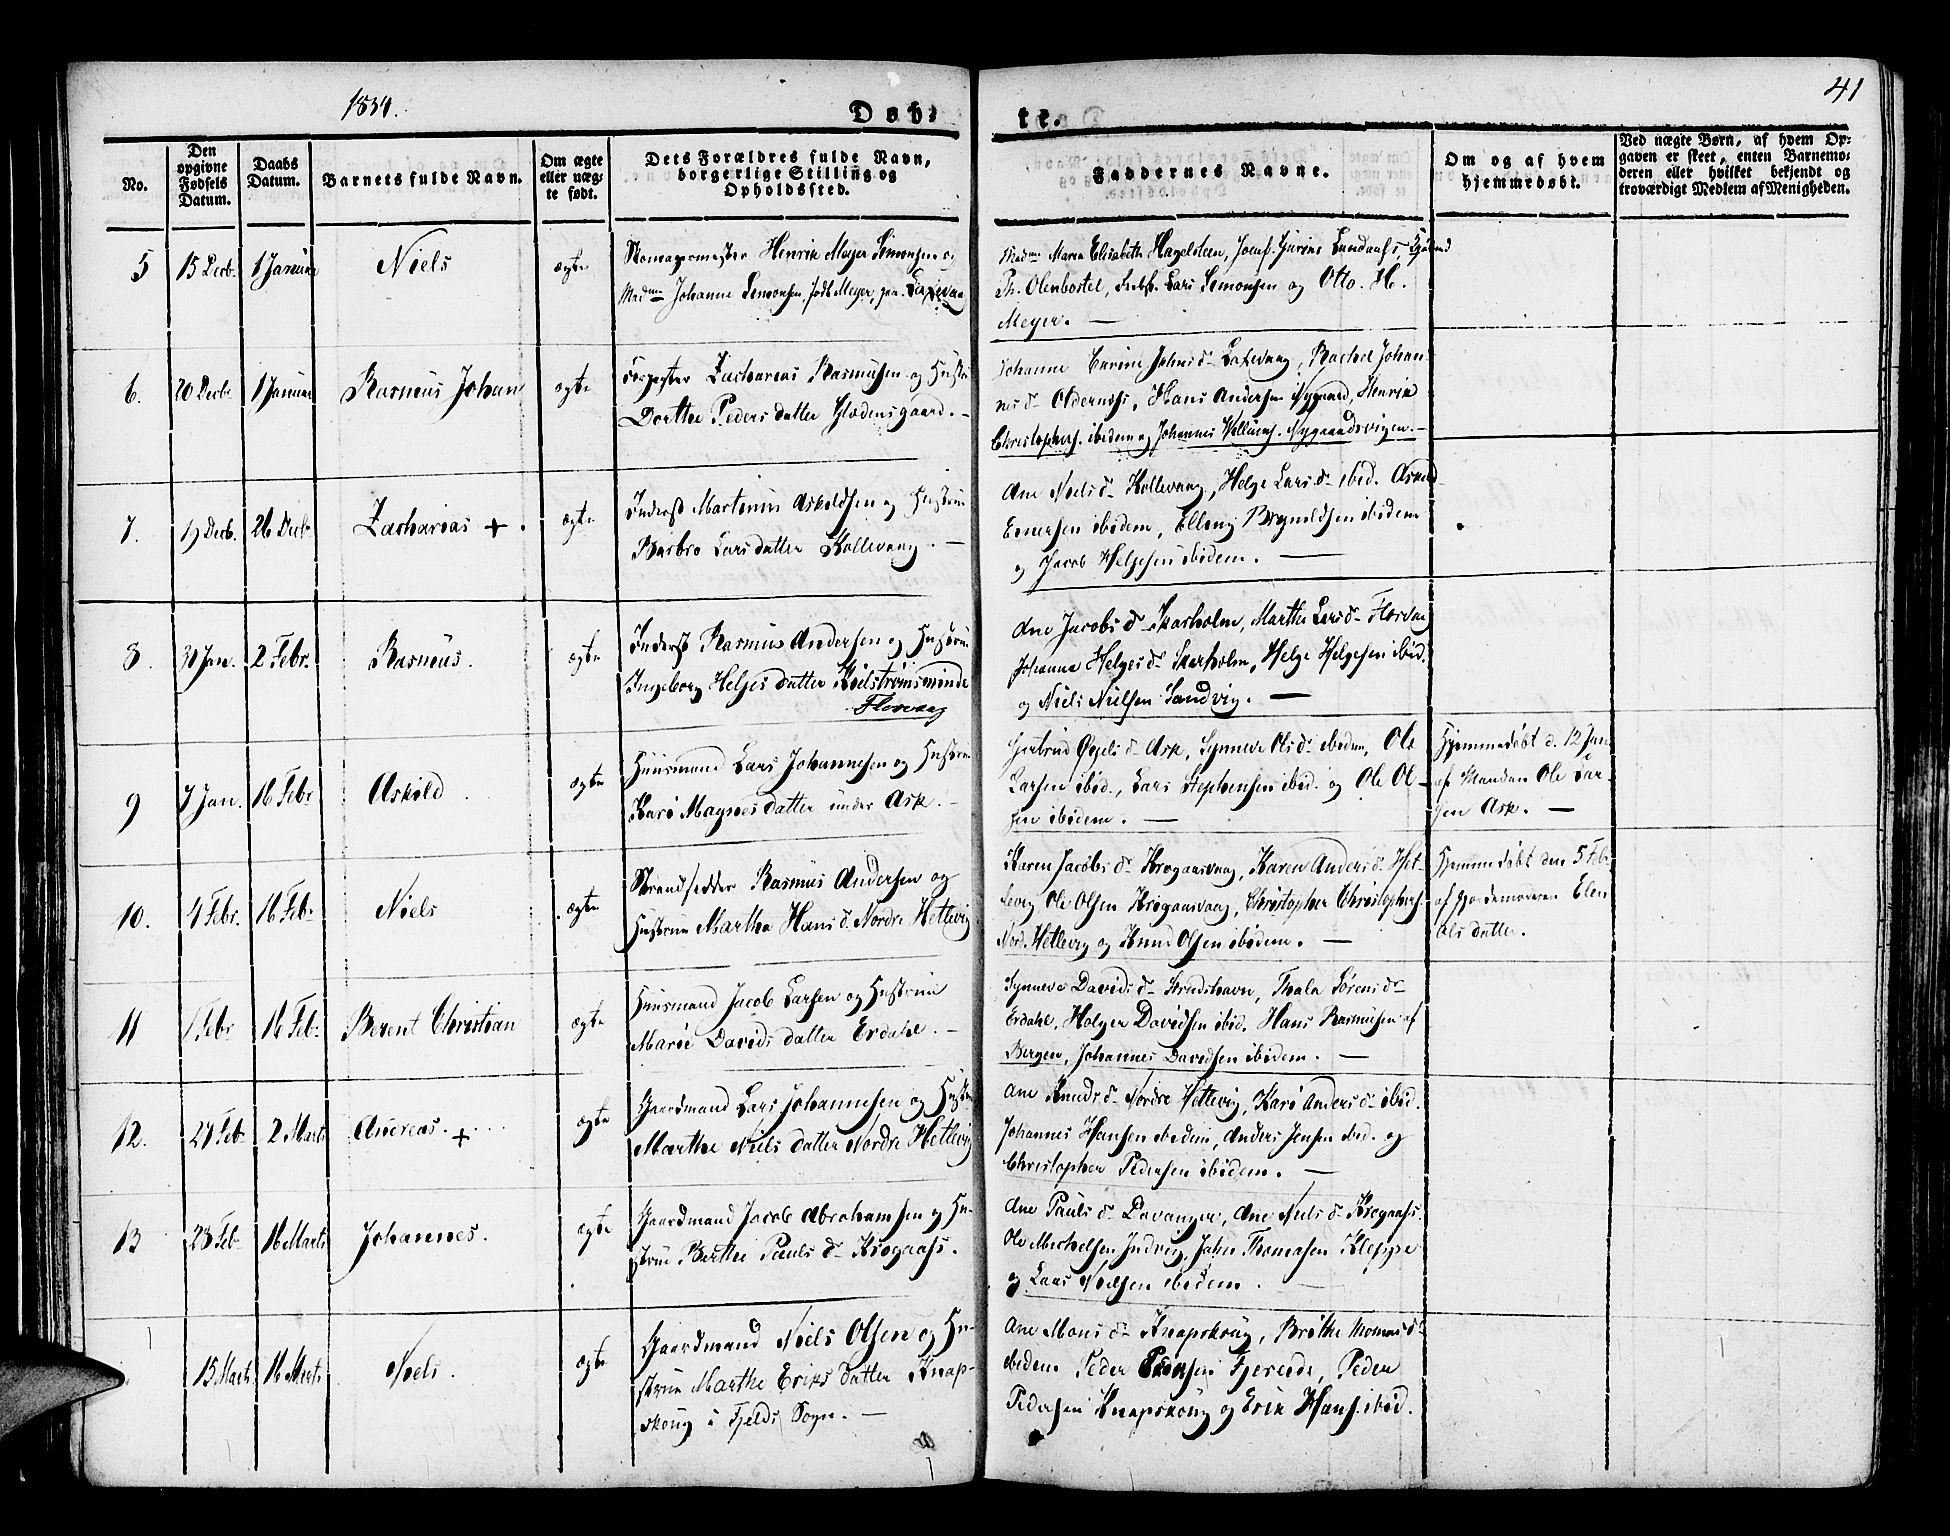 1834.
Døb-
te.
41
No.
Den opgivne Fødsels Datum.
Daabs Datum.
Barnets fulde Navn.
Om ægte eller uæg-te født.
Dets Forældres fulde Navn, borgerlige Stilling og Opholdssted.
Faddernes Navne.
Om og af hvem hjemmedøbt.
Ved uægte Børn, af hvem Op-gaven er skeet, enten Barnemo-deren eller hvilket bekjendt og troværdigt Medlem af Menigheden.
5 15 Decb. 1 Januar Niels ægte
Skomagermester Henrik Meyer Simonsen og
Madme Johanne Simonsen, født Meyer, paa
Madme Maren Elisabeth Hagelsteen, Josef.
Th. Olenbostel, Lars Simonsen og Otto. H.
Meyer. —
6. 20 Decb. 1 Januar Rasmus Johan ægte
Zacharias Rasmusen og Hustru
Dorthe Peders datter
Johanne Carine Johns d. Rachel Johan-
nes d. Oldernæss, Hans Andersen Nygaard, Henrik
Christophers. ibidem og Johannes Nygaardsvigen. —
7. 19 Decb. 26 Decb. Zacharias + ægte
Inderst Martinus Askeldsen og Hustrue
Barbro Lars datter Kollevaag. —
Ane Niels d. Kollevaag, Helge Lars d. ibid.
Einersen ibidem, Elling Brynildsen ibidem
og Jacob Helgesen ibidem. —
8. 30 Jan. 2 Febr. Rasmus. ægte
Inderst Rasmus Andersen og Hustrue
Ingeborg Helges datter Kielstrømsminde
Florvaag
Ane Jacobs d. Skarholm, Marthe Lars d. Florvaag
Johanna Helges d. Skarholm, Helge Helgesen ibid.
og Niels Nielsen Landvig. —
9 7 Jan. 16 Febr. Askild ægte
Huusmand Lars Johannesen og Hustrue
Kari Magnes datter under Ask. —
Giertrud d. Ask, Synneve Ols d. ibidem, Ole
Larsen ibid., Lars Stephensen ibid. og Ole Ol-
sen ibidem. —
Hjemmedøbt d. 12 Jan.
af Manden Ole Lar-
sen Ask. —
10. 4 Febr. 16 Feb. Niels ægte
Strandsidder Rasmus Andersen og
Hustrue Martha Hans d. Nordre Hetlevig
Karen Jacobs d. Krogaasvaag, Karen Anders d. Het-
levig, Ole Olsen Krogaasvaag, Christopher Christophers.
Nord. Hetlevig og Knud Olsen ibidem. —
Hjemmedøbt den 5 Feb.
af Gjordemoderen Elen
Ols datter.
11 1 Febr 16 Feb. Berent Christian ægte
Huusmand Jacob Larsen og Hustrue
Marie Davids datter Erdahl. —
Synneva Davids d. Strudshavn, Thala Sørens d.
Erdahl, Holger Davidsen ibid. Hans Rasmusen af
Bergen, Johannes Davidsen ibidem. —
12. 27 Feb. 2 Marts Andreas. + ægte
Gaardmand Lars Johannesen og Hustru
Marthe Niels datter Nordre Hetlevig
Ane Knuds d. Nordre Hetlevig, Kari Anders d. ibid.
Johannes Hansen ibidem, Anders Jensen ibid. og
Christopher Pedersen ibidem. —
13 23 Feb. 16 Marts Johannes. ægte
Gaardmand Jacob Abrahamsen og Hu-
strue Berthe Pauls d. Krogaass.
Ane Pauls d. Davanger, Ane Niels d. Krogaass.
Ole Michelsen Indvig, John Thomasen Kleppe
og Lars Nielsen ibidem. —
15 Marts 16 Marts Niels. ægte
Gaardmand Niels Olsen og Hu-
strue Marthe Eriks datter Knap-
skoug i Fjelds Sogn. —
Ane Mons d. Knapskoug, Brithe Monsen d.
ibidem Peder Fjereide, Peder
Pedersen Knapskoug og Erik Hans. ibid.